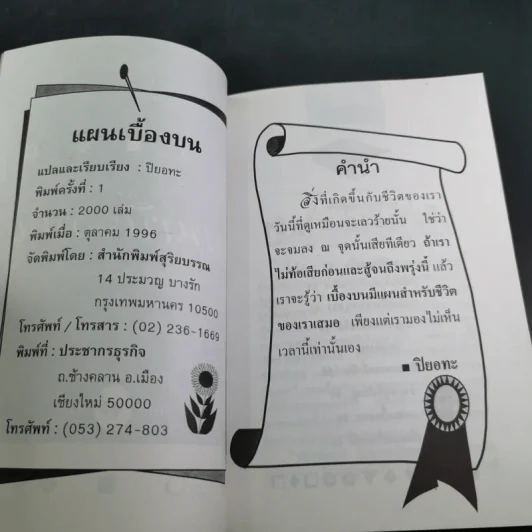 แผนเบื้องบน
แปลและเรียบเรียง : ปิยอทะ
พิมพ์ครั้งที่ : 1
จำนวน : 2000 เล่ม
พิมพ์เมื่อ : ตุลาคม 1996
จัดพิมพ์โดย : สำนักพิมพ์สุริยบรรณ
14 ประมวญ บางรัก
กรุงเทพมหานคร 10500
โทรศัพท์ / โทรสาร : (02) 236-1669
พิมพ์ที่ : ประชากรธุรกิจ
ถ.ช้างคลาน อ.เมือง
เชียงใหม่ 50000
โทรศัพท์ : (053) 274-803
คำนำ
สิ่งที่เกิดขึ้นกับชีวิตของเรา
วันนี้ที่ดูเหมือนจะเลวร้ายนั้น ใช่ว่า
จะจมลง ณ จุดนั้นเสียทีเดียว ถ้าเรา
ไม่ท้อเสียก่อนและสู้จนถึงพรุ่งนี้ แล้ว
เราจะรู้ว่า เบื้องบนมีแผนสำหรับชีวิต
ของเราเสมอ เพียงแต่เรามองไม่เห็น
เวลานี้เท่านั้นเอง
■ ปิยอทะ